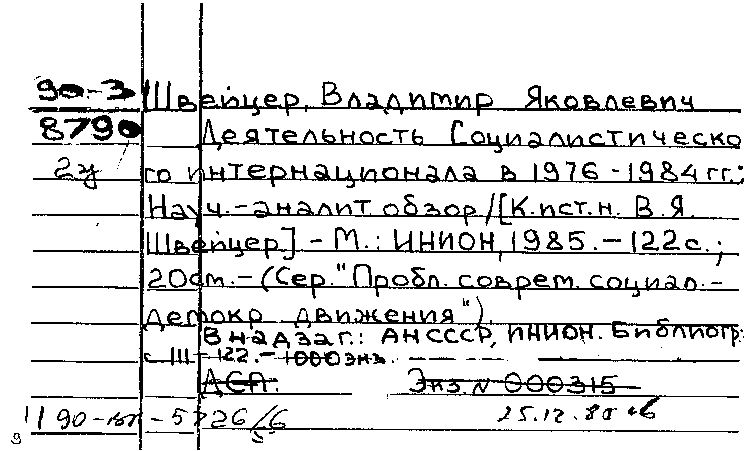 90-3 Швейцер, Владимир Яковлевич
8790 Деятельность Социалистическо
2 го интернационала в 1976-1984 гг.:
Науч.-аналит. обзор/[К.ист.н. В.Я.
Швейцер].-М.: ИНИОН, 1985.-122с.;
20см.-(Сер."Пробл. соврем. социал.-
демокр. движения").
В надзаг.: АН СССР, ИНИОН. Библиогр:
с 111-122.-1000экз.
ДСП. Экз. N 000315